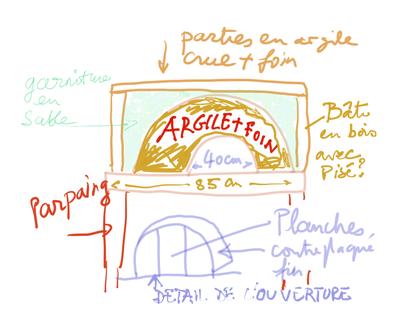 parties en argile
crue + foin
garniture
en
sable
ARGILE + FOIN
Bâti
en bois
avec
Pisé?
40cm
85 cm
Parpaing
Planches,
contreplaqué
fin
DETAIL DE L'OUVERTURE